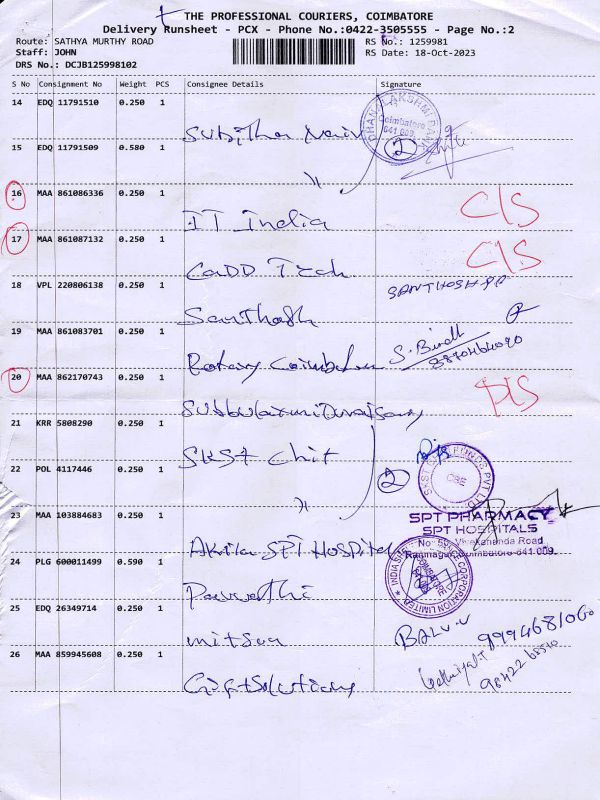 THE PROFESSIONAL COURIERS, COIMBATORE
Delivery Runsheet - PCX - Phone No.:0422-3505555 - Page No.:2
Route: SATHYA MURTHY ROAD RS No.: 1259981
Staff: JOHN RS Date: 18-Oct-2023
DRS No.: DCJB125998102
S No Consignment No Weight PCS Consignee Details Signature
14 EDQ 11791510 0.250 1
Subitha Nair
DHANLAKSHMI BANK Coimbatore 641 009
15 EDQ 11791509 0.580 1
" 2
16 MAA 861086336 0.250 1
IT India C/S
17 MAA 861087132 0.250 1
CADD Tech C/S
18 VPL 220806138 0.250 1
Santhosh SANTHOSH
19 MAA 861083701 0.250 1
Rotary Coimbatore
20 MAA 862170743 0.250 1
D/S
21 KRR 5808290 0.250 1
SKST Chit
22 POL 4117446 0.250 1
" 2
SKST FUNDS PVT LTD CBE
23 MAA 103884683 0.250 1
Akila SPT Hospital
SPT PHARMACY
SPT HOSPITALS
Vivekananda Road
Ramnagar, Coimbatore-641 009.
24 PLG 600011499 0.590 1
Parvathi
CORPORATION LIMITED
25 EDQ 26349714 0.250 1
mitsua BALU.V
26 MAA 859945608 0.250 1
Gift Solutions